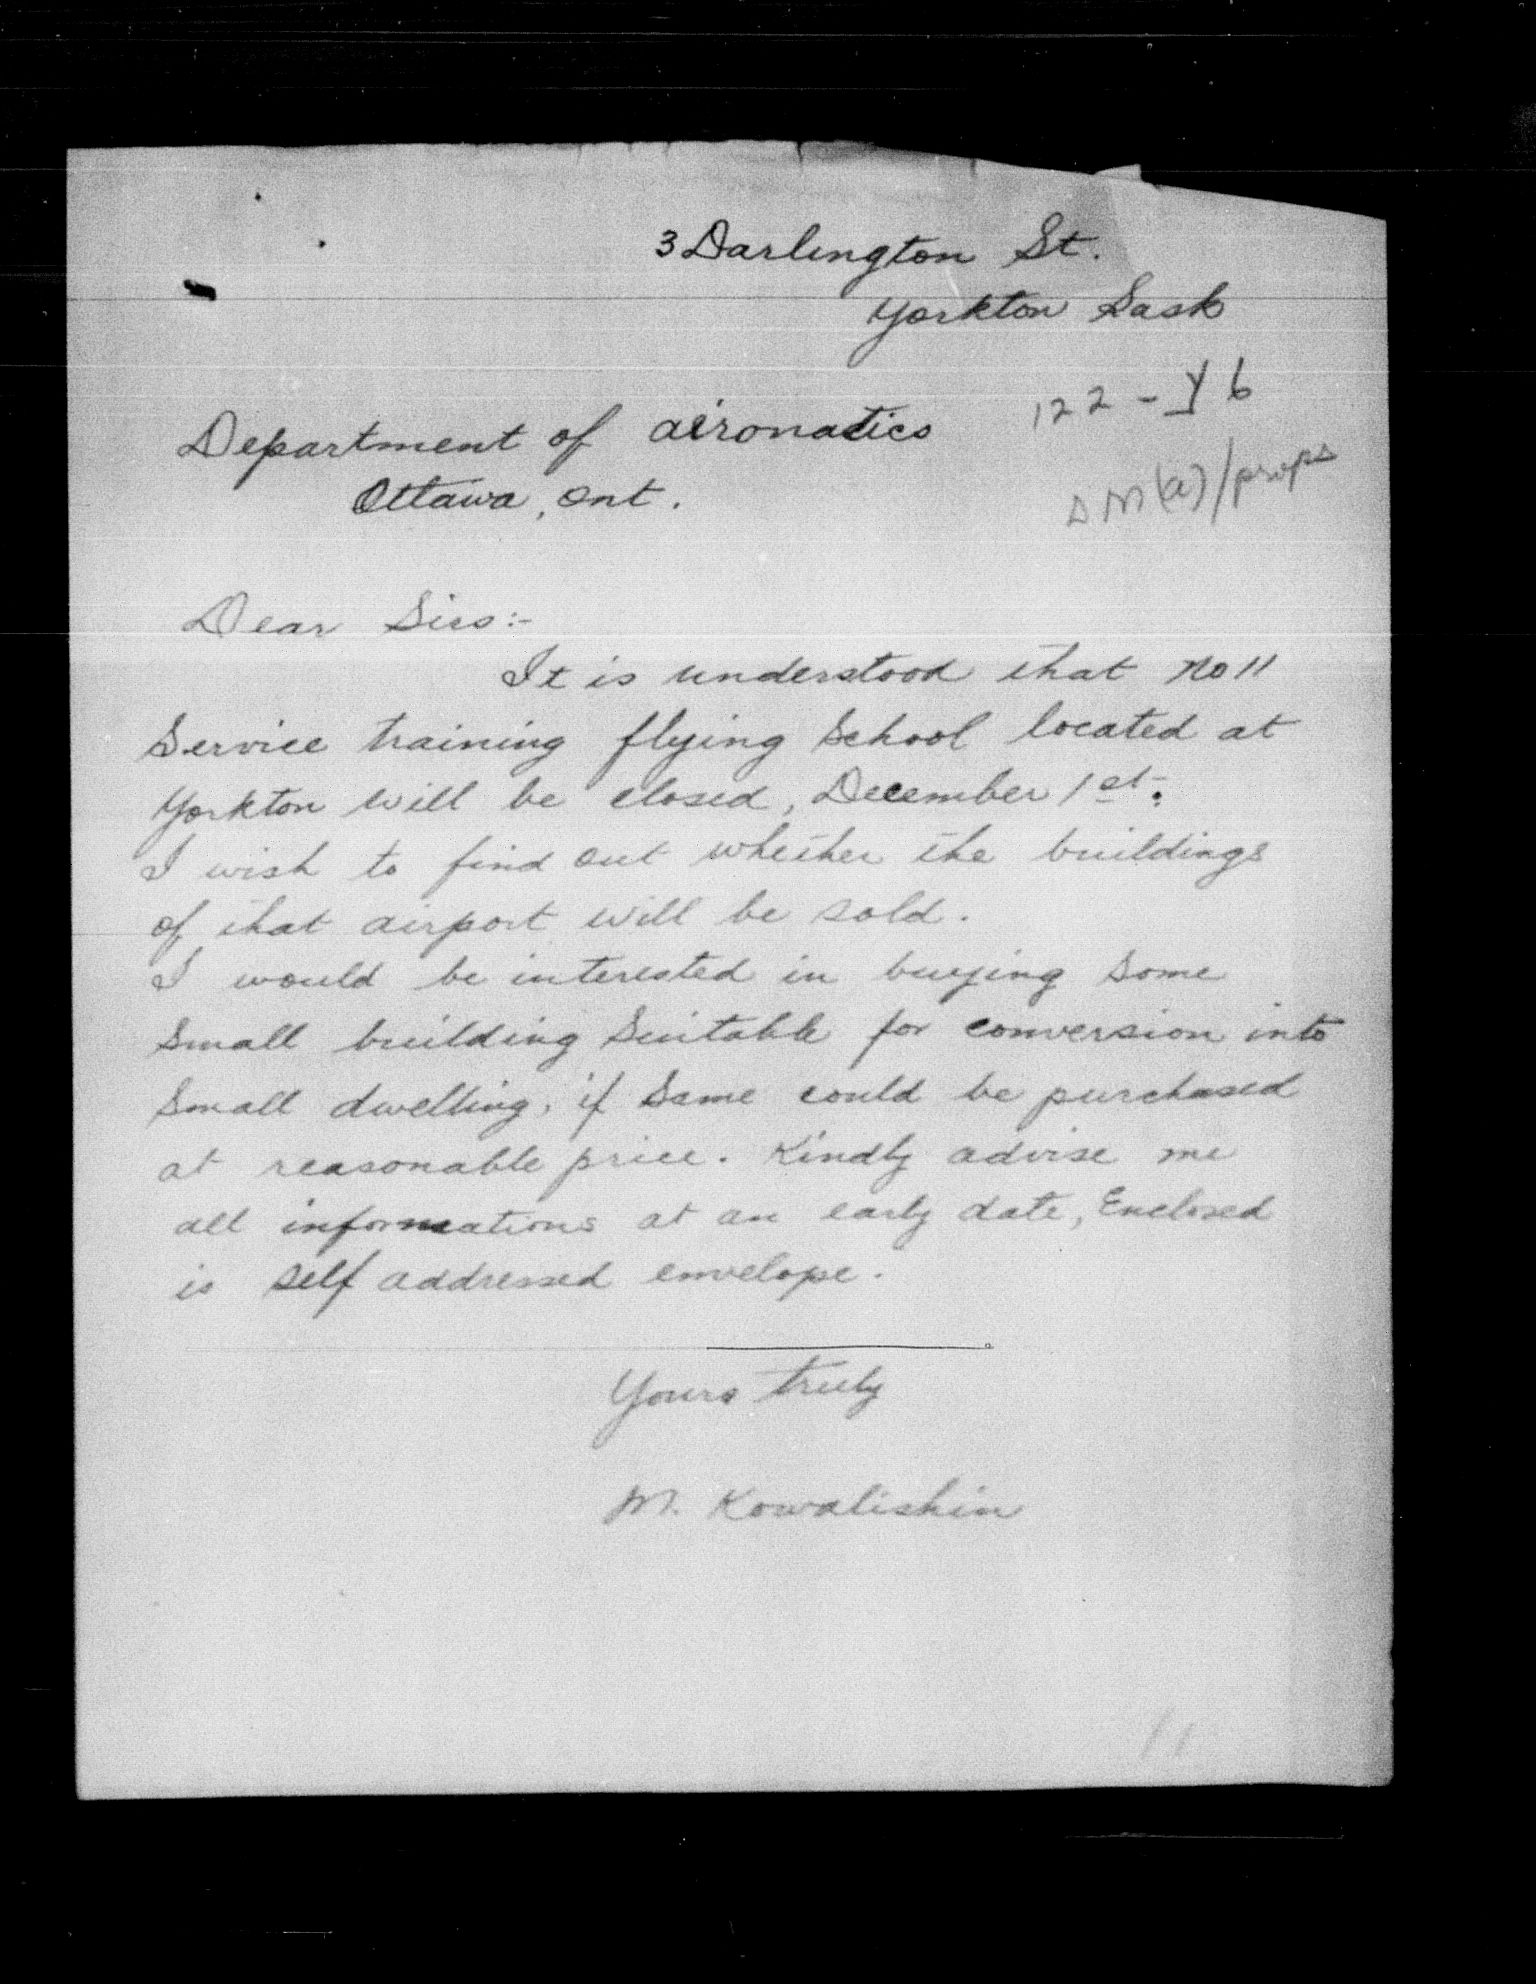 3 Darlington St.
Yorkton Sask
122 - Y6
Department of aironatics
Ottawa, Ont.
DM(a)/props
Dear Sirs:-
It is understood that No 11
Service training flying School located at
Yorkton will be closed, December 1st.
I wish to find out whether the buildings
of that airport will be sold.
I would be interested in buying some
small building suitable for conversion into
small dwelling, if same could be purchased
at reasonable price. Kindly advise me
all informations at an early date, Enclosed
is self addressed envelope.
Yours truly
M. Kowalishin
11